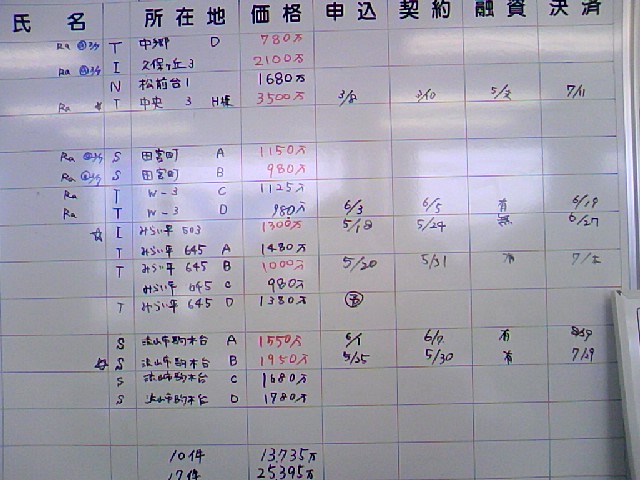 氏名 所在地 価格 申込 契約 融資 決済
T 中郷 D 780万
I 久保ヶ丘3 2100万
N 松前台1 1680万
Ra T 中央 3 3500万 3/8 3/10 7/11
Ra S 田宮町 A 1150万
Ra S 田宮町 B 980万
Ra T W-3 C 1125万
Ra T W-3 D 980万 6/3 6/5 有 6/19
☆ I みらい平 503 1300万 5/18 5/24 無 6/27
T みらい平 645 A 1480万
T みらい平 645 B 1000万 5/20 5/31 有
みらい平 645 C 980万
T みらい平 645 D 1380万
S 流山市駒木台 A 1550万 6/1 6/7 有
☆ S 流山市駒木台 B 1950万 5/25 5/30 有 7/19
S 流山市駒木台 C 1680万
S 流山市駒木台 D 1780万
10件 13.735万
17件 25.395万